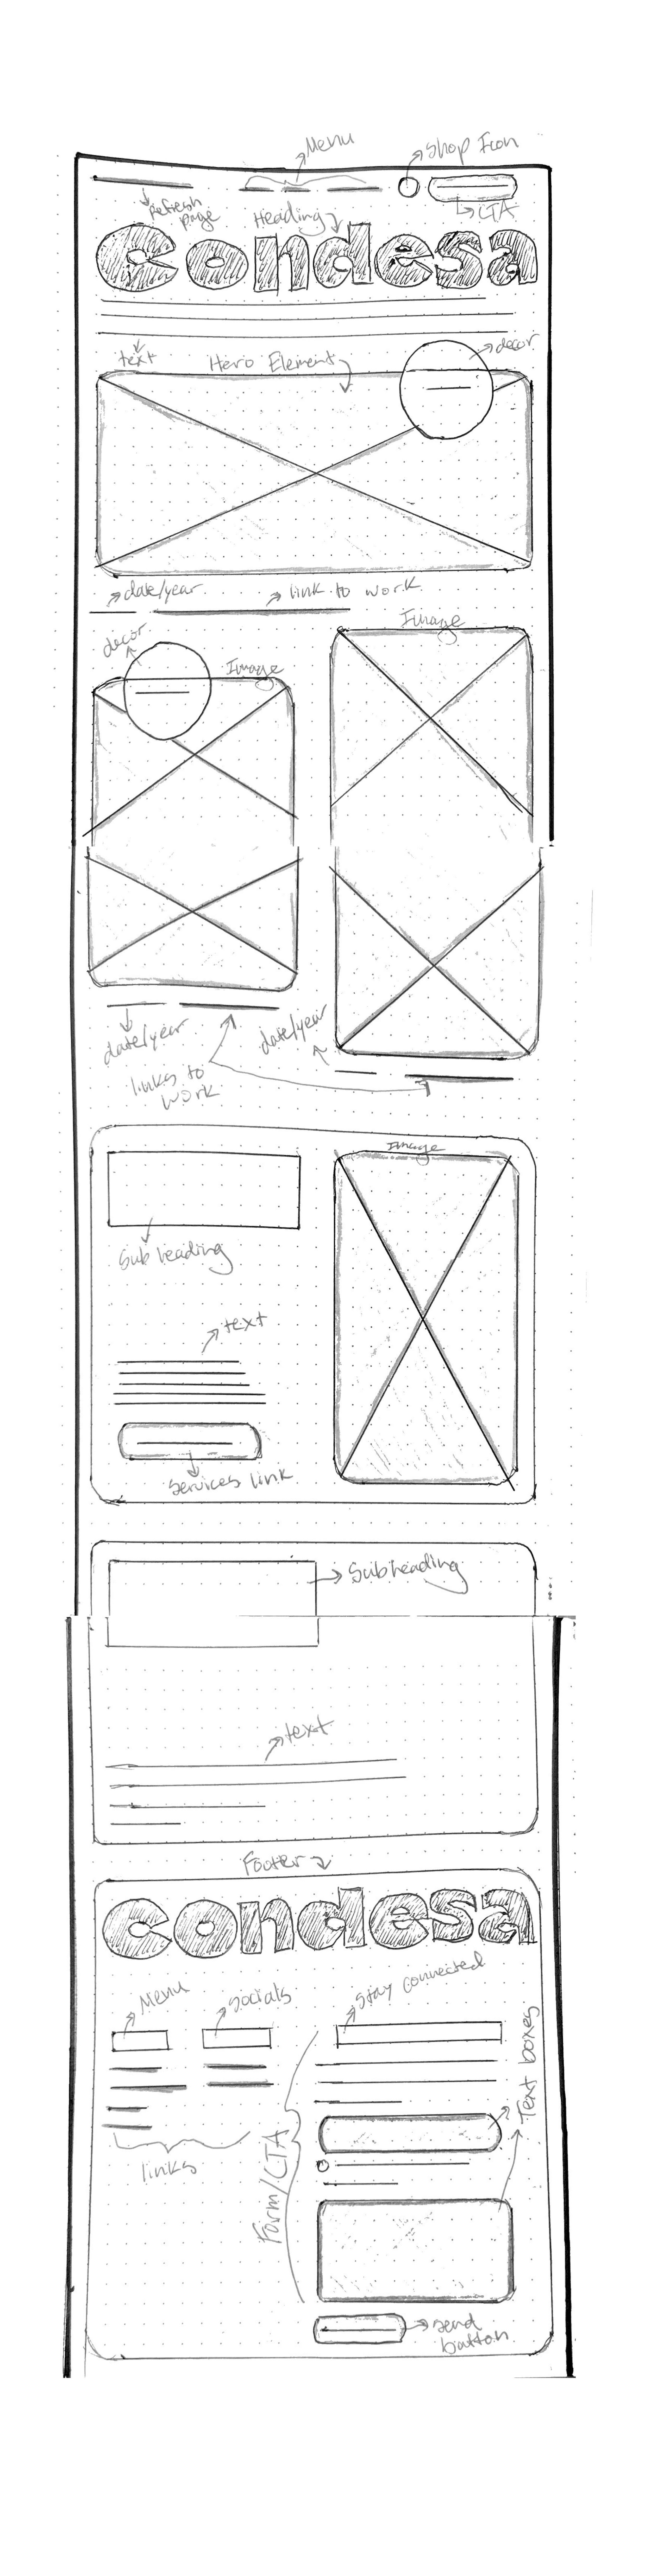 Menu
Shop Icon
Refresh
page
Heading
CTA
Condesa
text
Hero Element
decor
date/year
link to work
decor
Image
Image
date/year
links to
work
date/year
Image
Sub heading
text
Services link
Subheading
text
Footer
condesa
Menu
Socials
Stay connected
links
Form/CTA
Text boxes
send
button